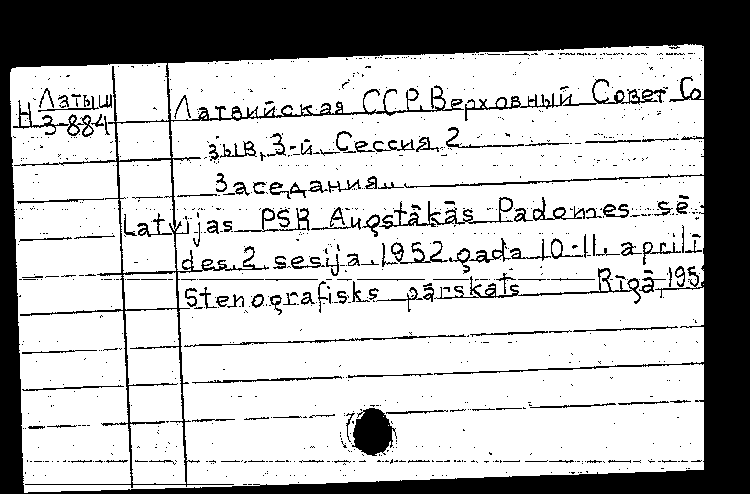 Н Латыш
3-884
Латвийская ССР. Верховный Совет. Со
зыв, 3-й. Сессия, 2.
Заседания...
Latvijas PSR Augstākās Padomes sē-
des. 2. sesija. 1952. gada 10-11. aprilī.
Stenografisks pārskats Rīgā, 1952